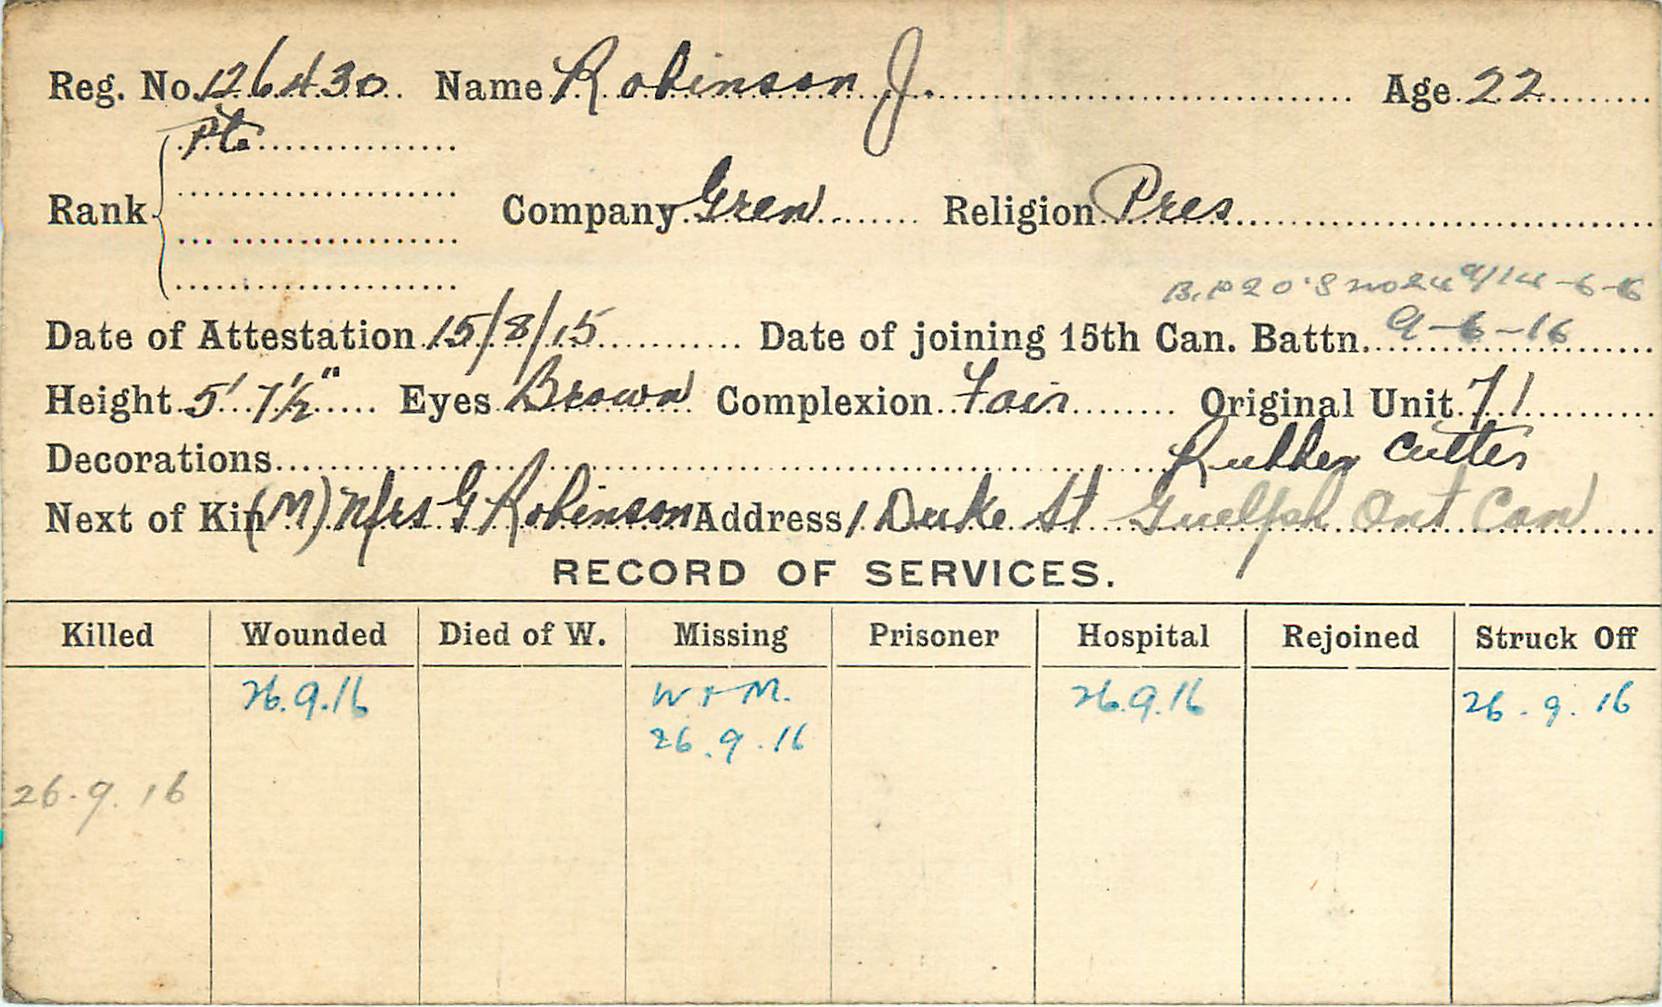 Reg. No. 126430 Name Robinson J. Age 22
Pte
Rank Company Gren Religion Pres
14-6-16
Date of Attestation 15/8/15 Date of joining 15th Can. Battn. 9-6-16
Height 5' 7½" Eyes Brown Complexion Fair Original Unit 71
Decorations Rubber Cutter
Next of Kin (M) Mrs G Robinson Address 1 Duke St Guelph Ont Can
RECORD OF SERVICES.
Killed Wounded Died of W. Missing Prisoner Hospital Rejoined Struck Off
26.9.16 W + M. 26.9.16 26.9.16
26.9.16
26.9.16